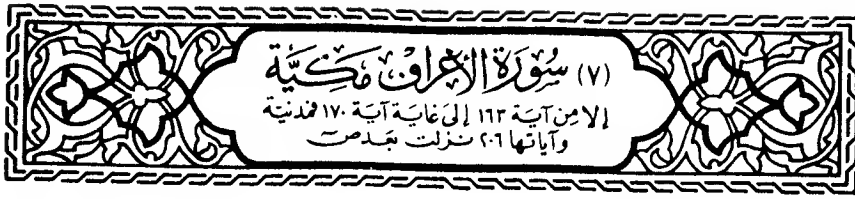 (٧) سُورَةُ الأَعْرَافِ مَكِيَّة
إلا مِن آيَة ١٦٣ إلى غَايَة آيَة ١٧٠ فمدنيَّة
وآياتها ٢٠٦ نزلت بَعد صٓ